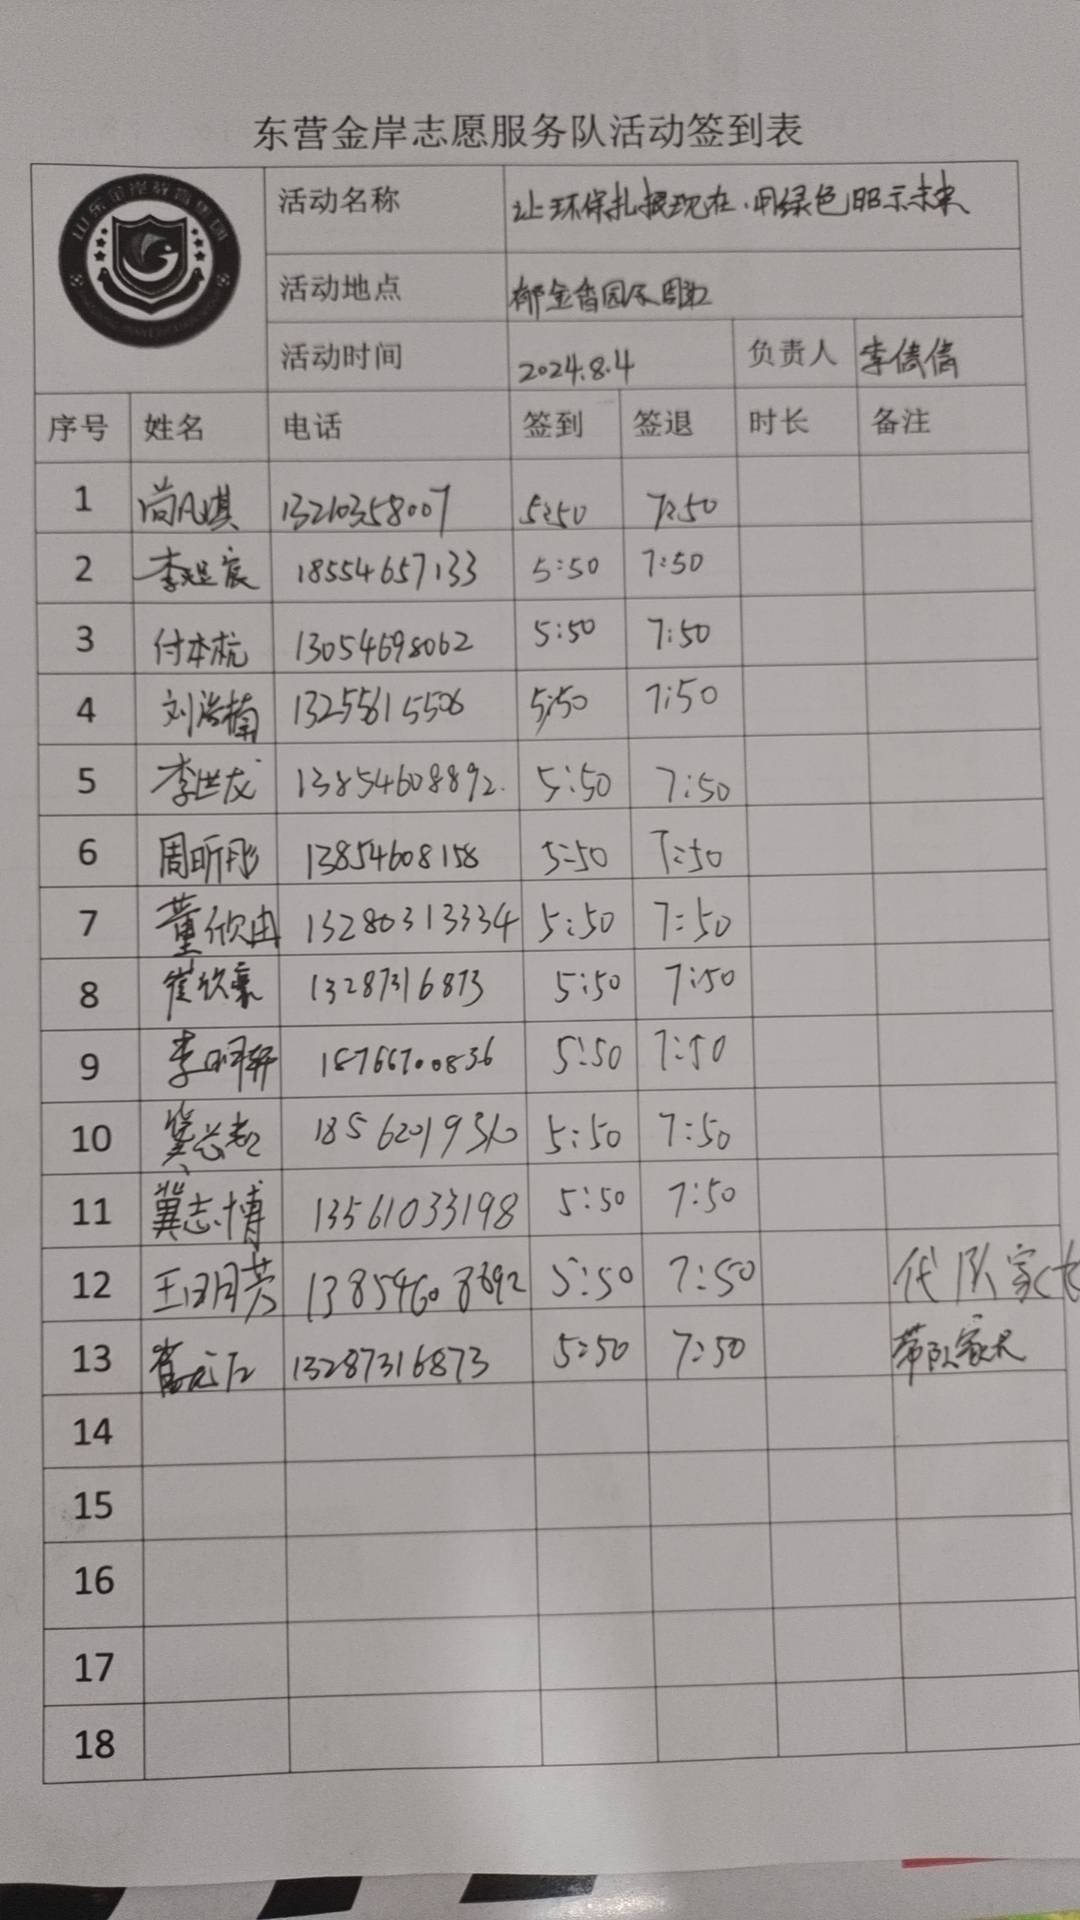 东营金岸志愿服务队活动签到表
山东金岸教育集团
活动名称 让环保扎根现在,用绿色昭示未来
活动地点 郁金香园区周边
活动时间 2024.8.4 负责人 李倩倩
序号 姓名 电话 签到 签退 时长 备注
1 尚凡淇 13210358007 5:50 7:50
2 李煜宸 18554657133 5:50 7:50
3 付本杭 13054698062 5:50 7:50
4 刘浩楠 13255615506 5:50 7:50
5 李世龙 13854608892. 5:50 7:50
6 周昕彤 13854608158 5:50 7:50
7 董欣由 13280313334 5:50 7:50
8 崔欣豪 13287316873 5:50 7:50
9 李明轩 18766700836 5:50 7:50
10 冀志超 18562019310 5:50 7:50
11 冀志博 13561033198 5:50 7:50
12 王明芳 13854608692 5:50 7:50 代队家长
13 13287316873 5:50 7:50 带队家长
14
15
16
17
18